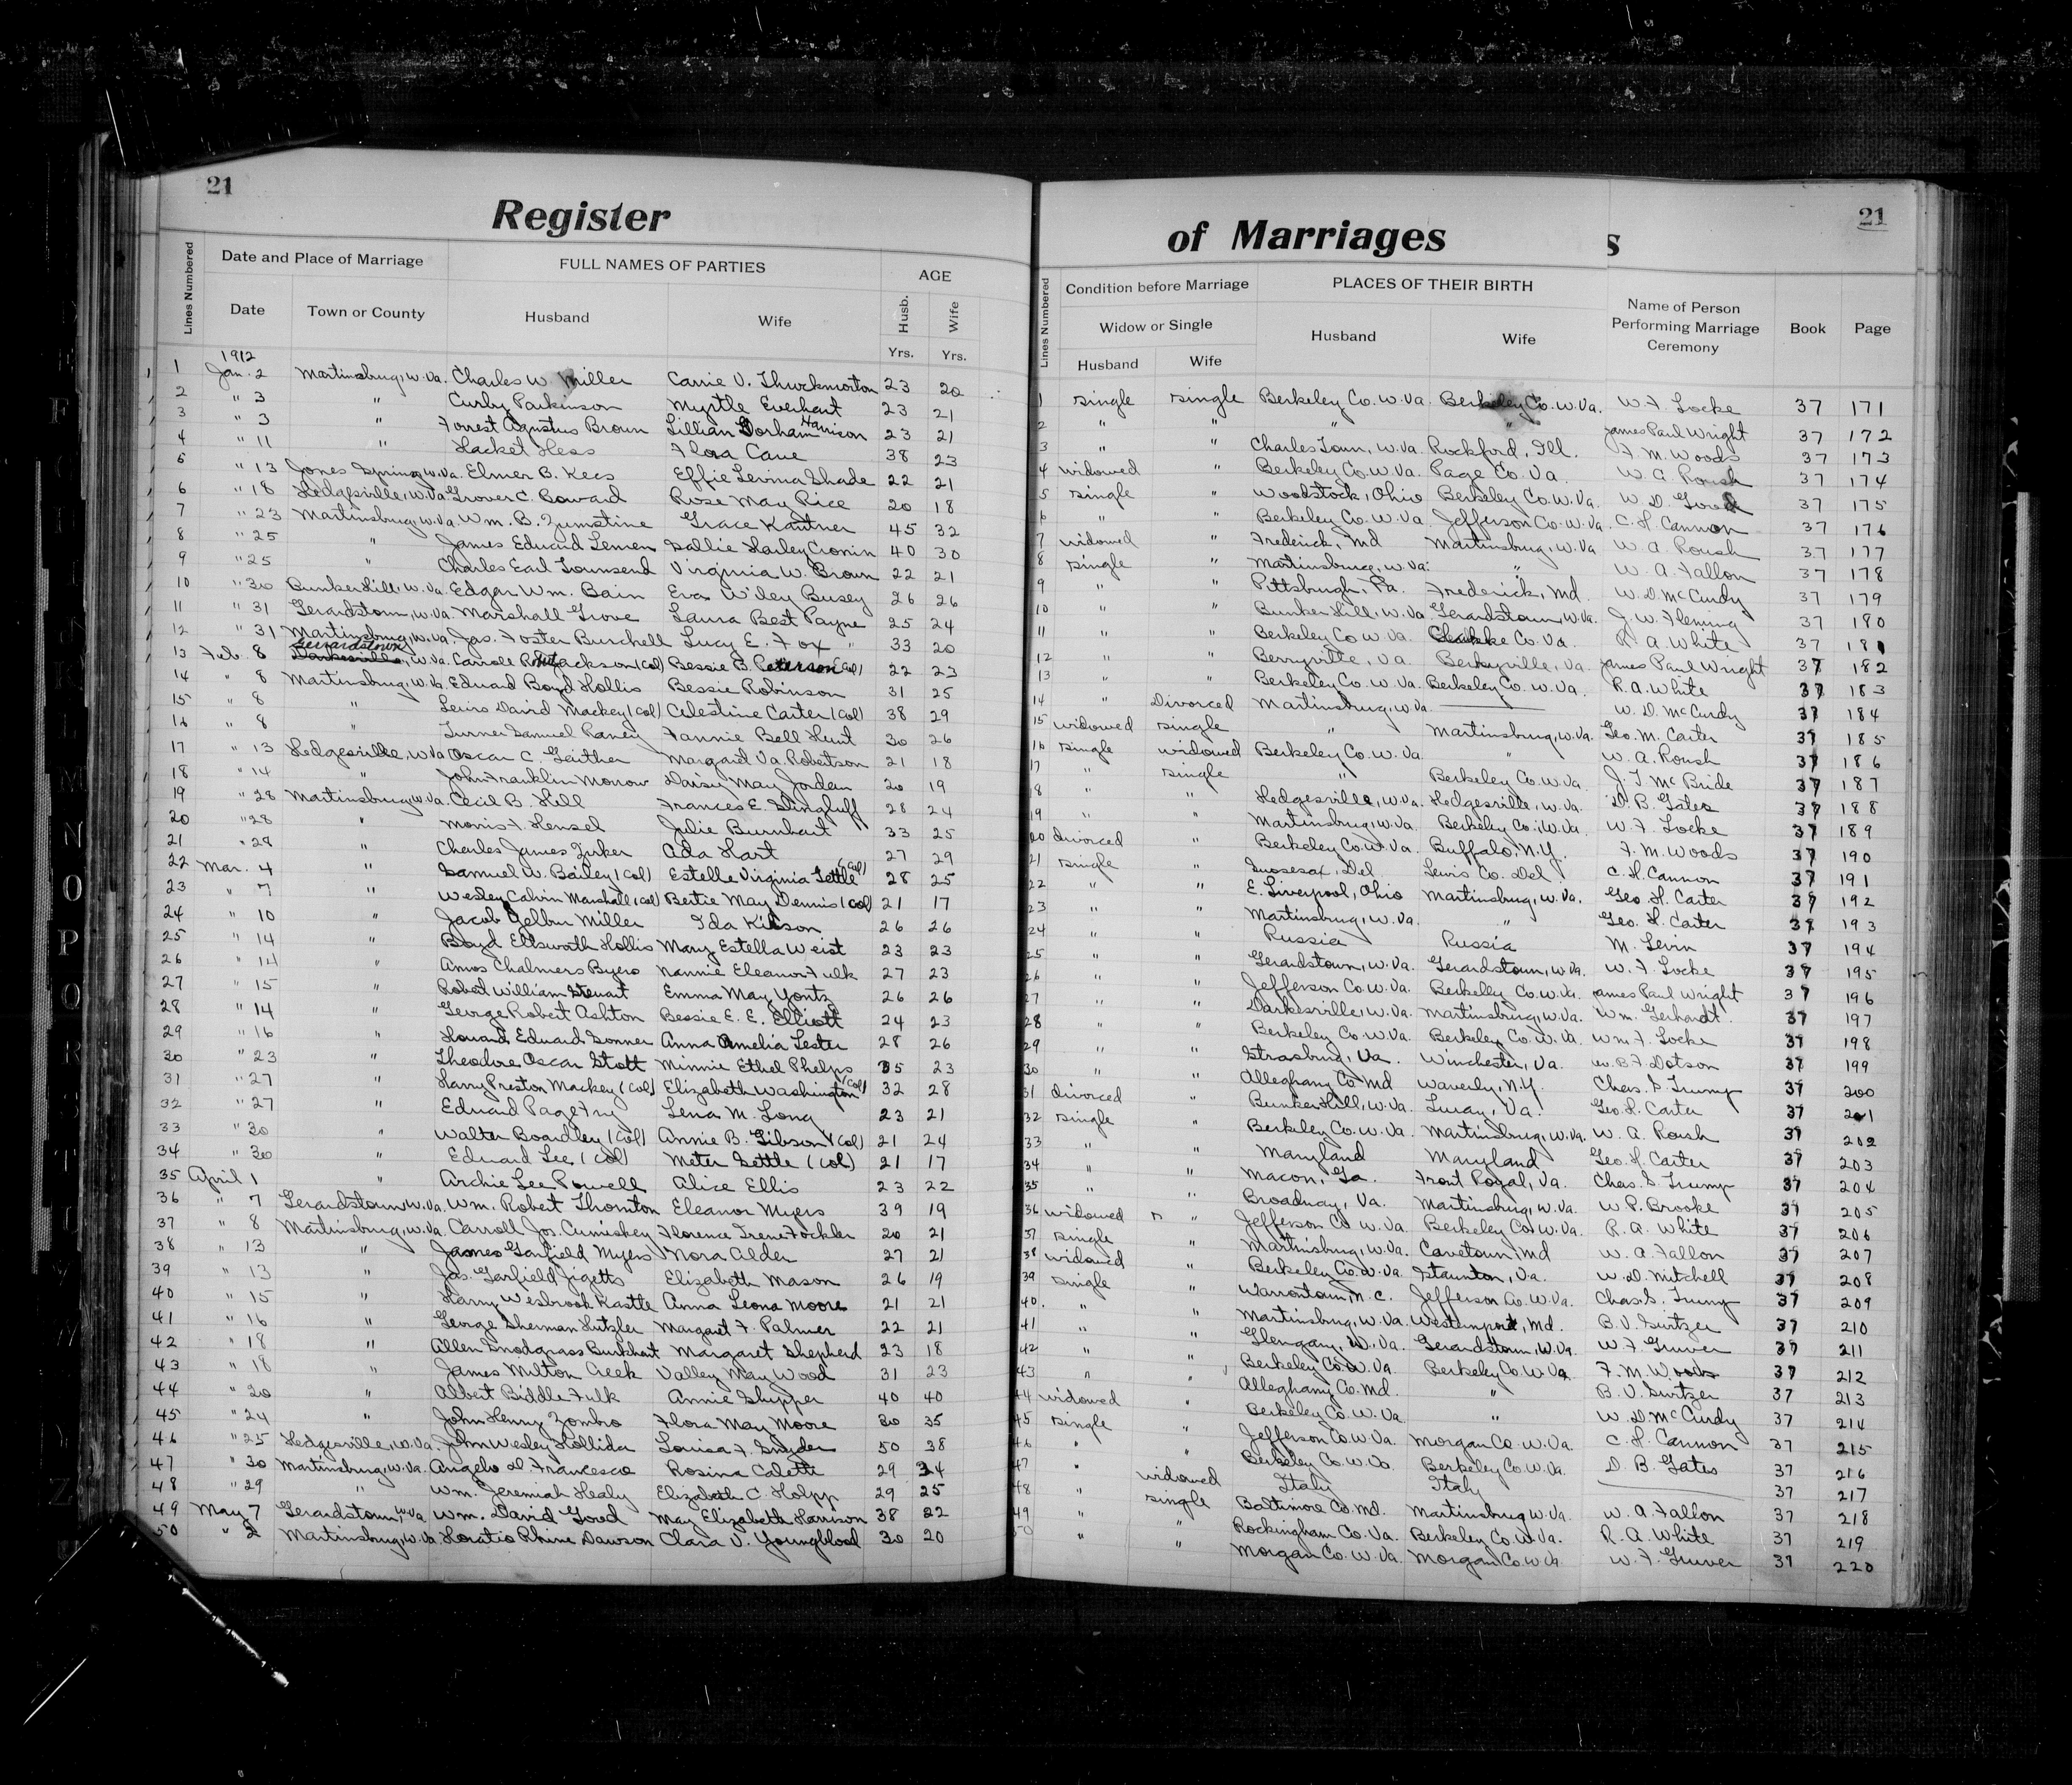 21
Register
Lines Numbered
Date and Place of Marriage
FULL NAMES OF PARTIES
AGE
Date
Town or County
Husband
Wife
Husb.
Wife
Yrs. Yrs.
1912
1 Jan. 2 Martinsburg, W. Va. Charles W. Miller Carrie V. Thurckmorton 23 20
2 " 3 " Curby Parkinson Myrtle Everhart 23 21
3 " 3 " Forrest Agustus Brown Lillian Gorham Harrison 23 21
4 " 11 " Hacket Hess Flora Cave 38 23
5 " 13 Jones Springs, W. Va. Elmer B. Kees Effie Levina Shade 22 21
6 " 18 Hedgesville, W. Va. Grover C. Boward Rose May Rice 20 18
7 " 23 Martinsburg, W. Va. Wm. B. Zumstine Grace Kautner 45 32
8 " 25 " James Edward Lemen Sallie Harley Cronin 40 30
9 " 25 " Charles Earl Townsend Virginia W. Brown 22 21
10 " 30 Bunker Hill, W. Va. Edgar Wm. Bain Eva Wiley Busey 26 26
11 " 31 Gerardstown, W. Va. Marshall Grove Laura Best Payne 25 24
12 " 31 Martinsburg, W. Va. Jas. Foster Burchell Lucy E. Fox " 33 20
13 Feb. 8 Gerrardstown Darkesville, W. Va. Carrole Jackson (Col) Bessie B. Peterson (Col) 22 23
14 " 8 Martinsburg, W. Va. Edward Boyd Hollis Bessie Robinson 31 25
15 " 8 " Lewis David Mackey (Col) Celestine Carter (Col) 38 29
16 " 8 " Turner Samuel Raney Fannie Bell Hunt 30 26
17 " 13 Hedgesville, W. Va. Oscar C. Gaither Margaret Va. Robertson 21 18
18 " 14 " John Franklin Morrow Daisy May Jorden 20 19
19 " 28 Martinsburg, W. Va. Cecil B. Hill Frances E. Slingluff 28 24
20 " 28 " Morris F. Hensel Julie Burnhart 33 25
21 " 28 " Charles James Ada Hart 27 29
22 Mar. 4 " Samuel W. Bailey (Col) Estelle Virginia Settle (Col) 28 25
23 " 7 " Wesley Calvin Marshall (Col) Bertie May Dennis (Col) 21 17
24 " 10 " Jacob Miller Ida 26 26
25 " 14 " Boyd Ellsworth Hollis Mary Estella Weist 23 23
26 " 14 " Amos Chalmers Byers Nannie Eleanor Fulk 27 23
27 " 15 " Robert William Stewart Emma May Yontz 26 26
28 " 14 " George Robert Ashton Bessie E. E. Elliott 24 23
29 " 16 " Howard Edward Anna Amelia Lester 28 26
30 " 23 " Theodore Oscar Stott Minnie Ethel Phelps 35 23
31 " 27 " Harry Preston Mackey (Col) Elizabeth Washington (Col) 32 28
32 " 27 " Edward Page Fry Lena M. Long 23 21
33 " 30 " Walter Boardley (Col) Annie B. Gibson (Col) 21 24
34 " 30 " Edward Lee (Col) Meter Settle (Col) 21 17
35 April 1 " Archie Lee Powell Alice Ellis 23 22
36 " 7 Gerardstown, W. Va. Wm. Robert Thornton Eleanor Myers 39 19
37 " 8 Martinsburg, W. Va. Carroll Jos. Cumiskey Florence Irene Fockler 20 21
38 " 13 " James Garfield Myers Nora Alder 27 21
39 " 13 " Jas. Garfield Jigetts Elizabeth Mason 26 19
40 " 15 " Harry Wesbrook Kastle Anna Leona Moore 21 21
41 " 16 " George Sherman Hitzler Margaret F. Palmer 22 21
42 " 18 " Allen Snodgrass Burkhart Margaret Shepherd 23 18
43 " 18 " James Milton Creek Valley May Wood 31 23
44 " 20 " Albert Biddle Fulk Annie Shipper 40 40
45 " 24 " John Henry Zombro Flora May Moore 30 35
46 " 25 Hedgesville, W. Va. John Wesley Hollida Louisa F. Snyder 50 38
47 " 30 Martinsburg, W. Va. Angelo Francesco Rosina Coletti 29 24
48 " 29 " Wm. Jeremiah Healy Elizabeth C. Holpp 29 25
49 May 7 Gerardstown, W. Va. Wm. David Goved May Elizabeth Harrison 38 22
50 " 2 Martinsburg, W. Va. Horatio Rhine Dawson Clara V. Youngblood 30 20
21
of Marriages
s
Lines Numbered
Condition before Marriage
PLACES OF THEIR BIRTH
Name of Person Performing Marriage Ceremony
Book
Page
Widow or Single
Husband
Wife
Husband
Wife
1 single single Berkeley Co. W. Va. Berkeley Co. W. Va. W. F. Locke 37 171
2 " " " " James Paul Wright 37 172
3 " " Charles Town, W. Va. Rockford, Ill. F. M. Woods 37 173
4 widowed " Berkeley Co. W. Va. Page Co. Va. W. A. Roush 37 174
5 single " Woodstock, Ohio Berkeley Co. W. Va. W. D. 37 175
6 " " Berkeley Co. W. Va. Jefferson Co. W. Va. C. H. Cannon 37 176
7 widowed " Frederick, Md Martinsburg, W. Va W. A. Roush 37 177
8 single " Martinsburg, W. Va. " W. A. Fallon 37 178
9 " " Pittsburgh, Pa. Frederick, Md. W. D. McCurdy 37 179
10 " " Bunker Hill, W. Va. Gerardstown, W. Va. J. W. Fleming 37 180
11 " " Berkeley Co. W. Va. Clarke Co. Va. R. A. White 37 181
12 " " Berryville, Va. Berryville, Va. James Paul Wright 37 182
13 " " Berkeley Co. W. Va. Berkeley Co. W. Va. R. A. White 37 183
14 " Divorced Martinsburg, W. Va. W. D. McCurdy 37 184
15 widowed single " Martinsburg, W. Va. Geo. M. Carter 37 185
16 single widowed Berkeley Co. W. Va. " W. A. Roush 37 186
17 " single " Berkeley Co. W. Va. J. T. McBride 37 187
18 " " Hedgesville, W. Va. Hedgesville, W. Va. D. B. Gates 37 188
19 " " Martinsburg, W. Va. Berkeley Co. W. Va. W. F. Locke 37 189
20 divorced " Berkeley Co. W. Va. Buffalo, N. Y. F. M. Woods 37 190
21 single " Del Lewis Co. Del C. H. Cannon 37 191
22 " " E. Liverpool, Ohio Martinsburg, W. Va. Geo. H. Carter 37 192
23 " " Martinsburg, W. Va. " Geo. H. Carter 37 193
24 " " Russia Russia M. Levin 37 194
25 " " Gerardstown, W. Va. Gerardstown, W. Va. W. F. Locke 37 195
26 " " Jefferson Co. W. Va. Berkeley Co. W. Va. James Paul Wright 37 196
27 " " Darkesville, W. Va. Martinsburg, W. Va. Wm. Gerhardt 37 197
28 " " Berkeley Co. W. Va. Berkeley Co. W. Va. Wm. F. Locke 37 198
29 " " Strasburg, Va. Winchester, Va. B. F. Dotson 37 199
30 " " Alleghany Co. Md Waverly, N. Y. Chas. S. Trump 37 200
31 divorced " Bunker Hill, W. Va. Luray, Va. Geo. H. Carter 37 201
32 single " Berkeley Co. W. Va. Martinsburg, W. Va. W. A. Roush 37 202
33 " " Maryland Maryland Geo. H. Carter 37 203
34 " " Macon, Ga. Front Royal, Va. Chas. S. Trump 37 204
35 " " Broadway, Va. Martinsburg, W. Va. W. P. Brooke 37 205
36 widowed " Jefferson Co W. Va. Berkeley Co. W. Va. R. A. White 37 206
37 single " Martinsburg, W. Va. Cavetown, Md W. A. Fallon 37 207
38 widowed " Berkeley Co. W. Va. Staunton, Va. W. D. Mitchell 37 208
39 single " Warrontown, N. C. Jefferson Co. W. Va. Chas. S. Trump 37 209
40 " " Martinsburg, W. Va. Westernport, Md. B. V. Switzer 37 210
41 " " Glengary, W. Va. Gerardstown, W. Va. W. F. Gruver 37 211
42 " " Berkeley Co. W. Va. Berkeley Co. W. Va. F. M. Woods 37 212
43 " " Alleghany Co. Md. " B. V. Switzer 37 213
44 widowed " Berkeley Co. W. Va. " W. D. McCurdy 37 214
45 single " Jefferson Co. W. Va. Morgan Co. W. Va. C. H. Cannon 37 215
46 " " Berkeley Co. W. Va. Berkeley Co. W. Va. D. B. Gates 37 216
47 " widowed Italy Italy 37 217
48 " single Baltimore Co. Md. Martinsburg W. Va. W. A. Fallon 37 218
49 " " Rockingham Co. Va. Berkeley Co. W. Va. R. A. White 37 219
50 " " Morgan Co. W. Va. Morgan Co. W. Va W. F. Gruver 37 220